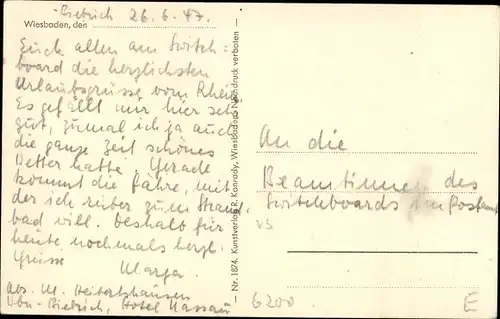 -Biebrich 26.6.47.
Wiesbaden, den
Euch allen am Switch-
board die herzlichsten
Urlaubsgrüsse vom Rhein.
Es gefällt mir hier sehr
gut, zumal ich ja auch
die ganze Zeit schönes
Wetter hatte. Gerade
kommt die Fähre, mit
der ich rüber zum Strand-
bad will. Deshalb für
heute, nochmals herzl.
Grüsse Marga.
Abs. M. Heibertshausen
Wbn-Biebrich, Hotel Nassau
Nr. 1874. Kunstverlag R. Konrady, Wiesbaden. Nachdruck verboten
An die
Beamtinnen des
Switchboards im Postamt
6200
E